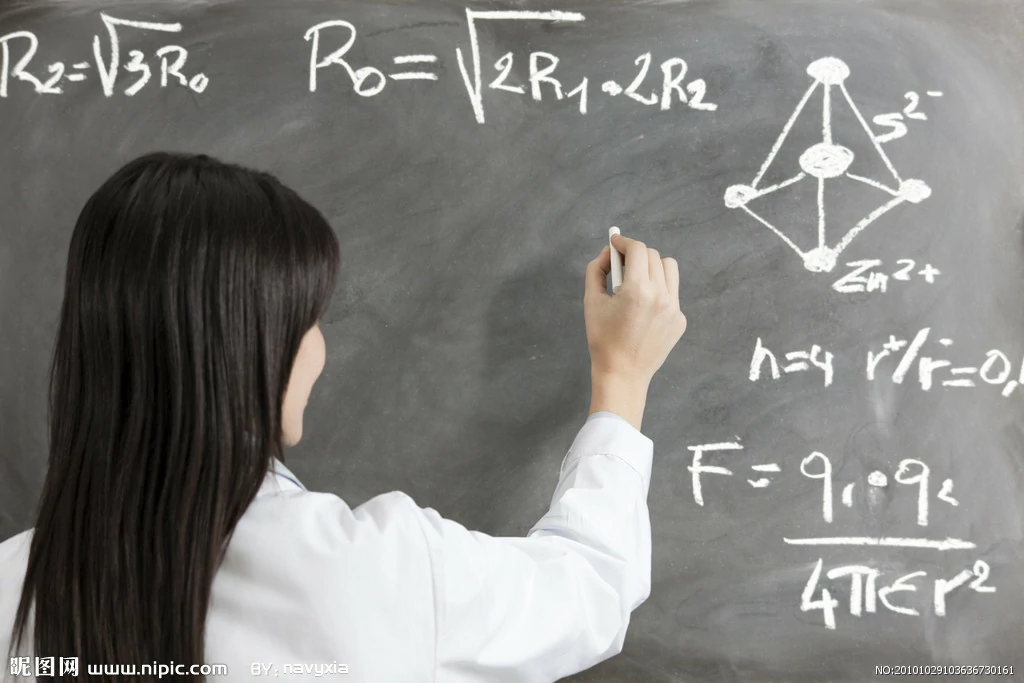 R₂=√3R₀
R₀=√2R₁·2R₂
S²⁻
Zn²⁺
n=4 r⁺/r⁻=0,
F̅ = q₁·q₂
4πεr²
昵图网 www.nipic.com BY:navyxia
NO:20101029103636730161